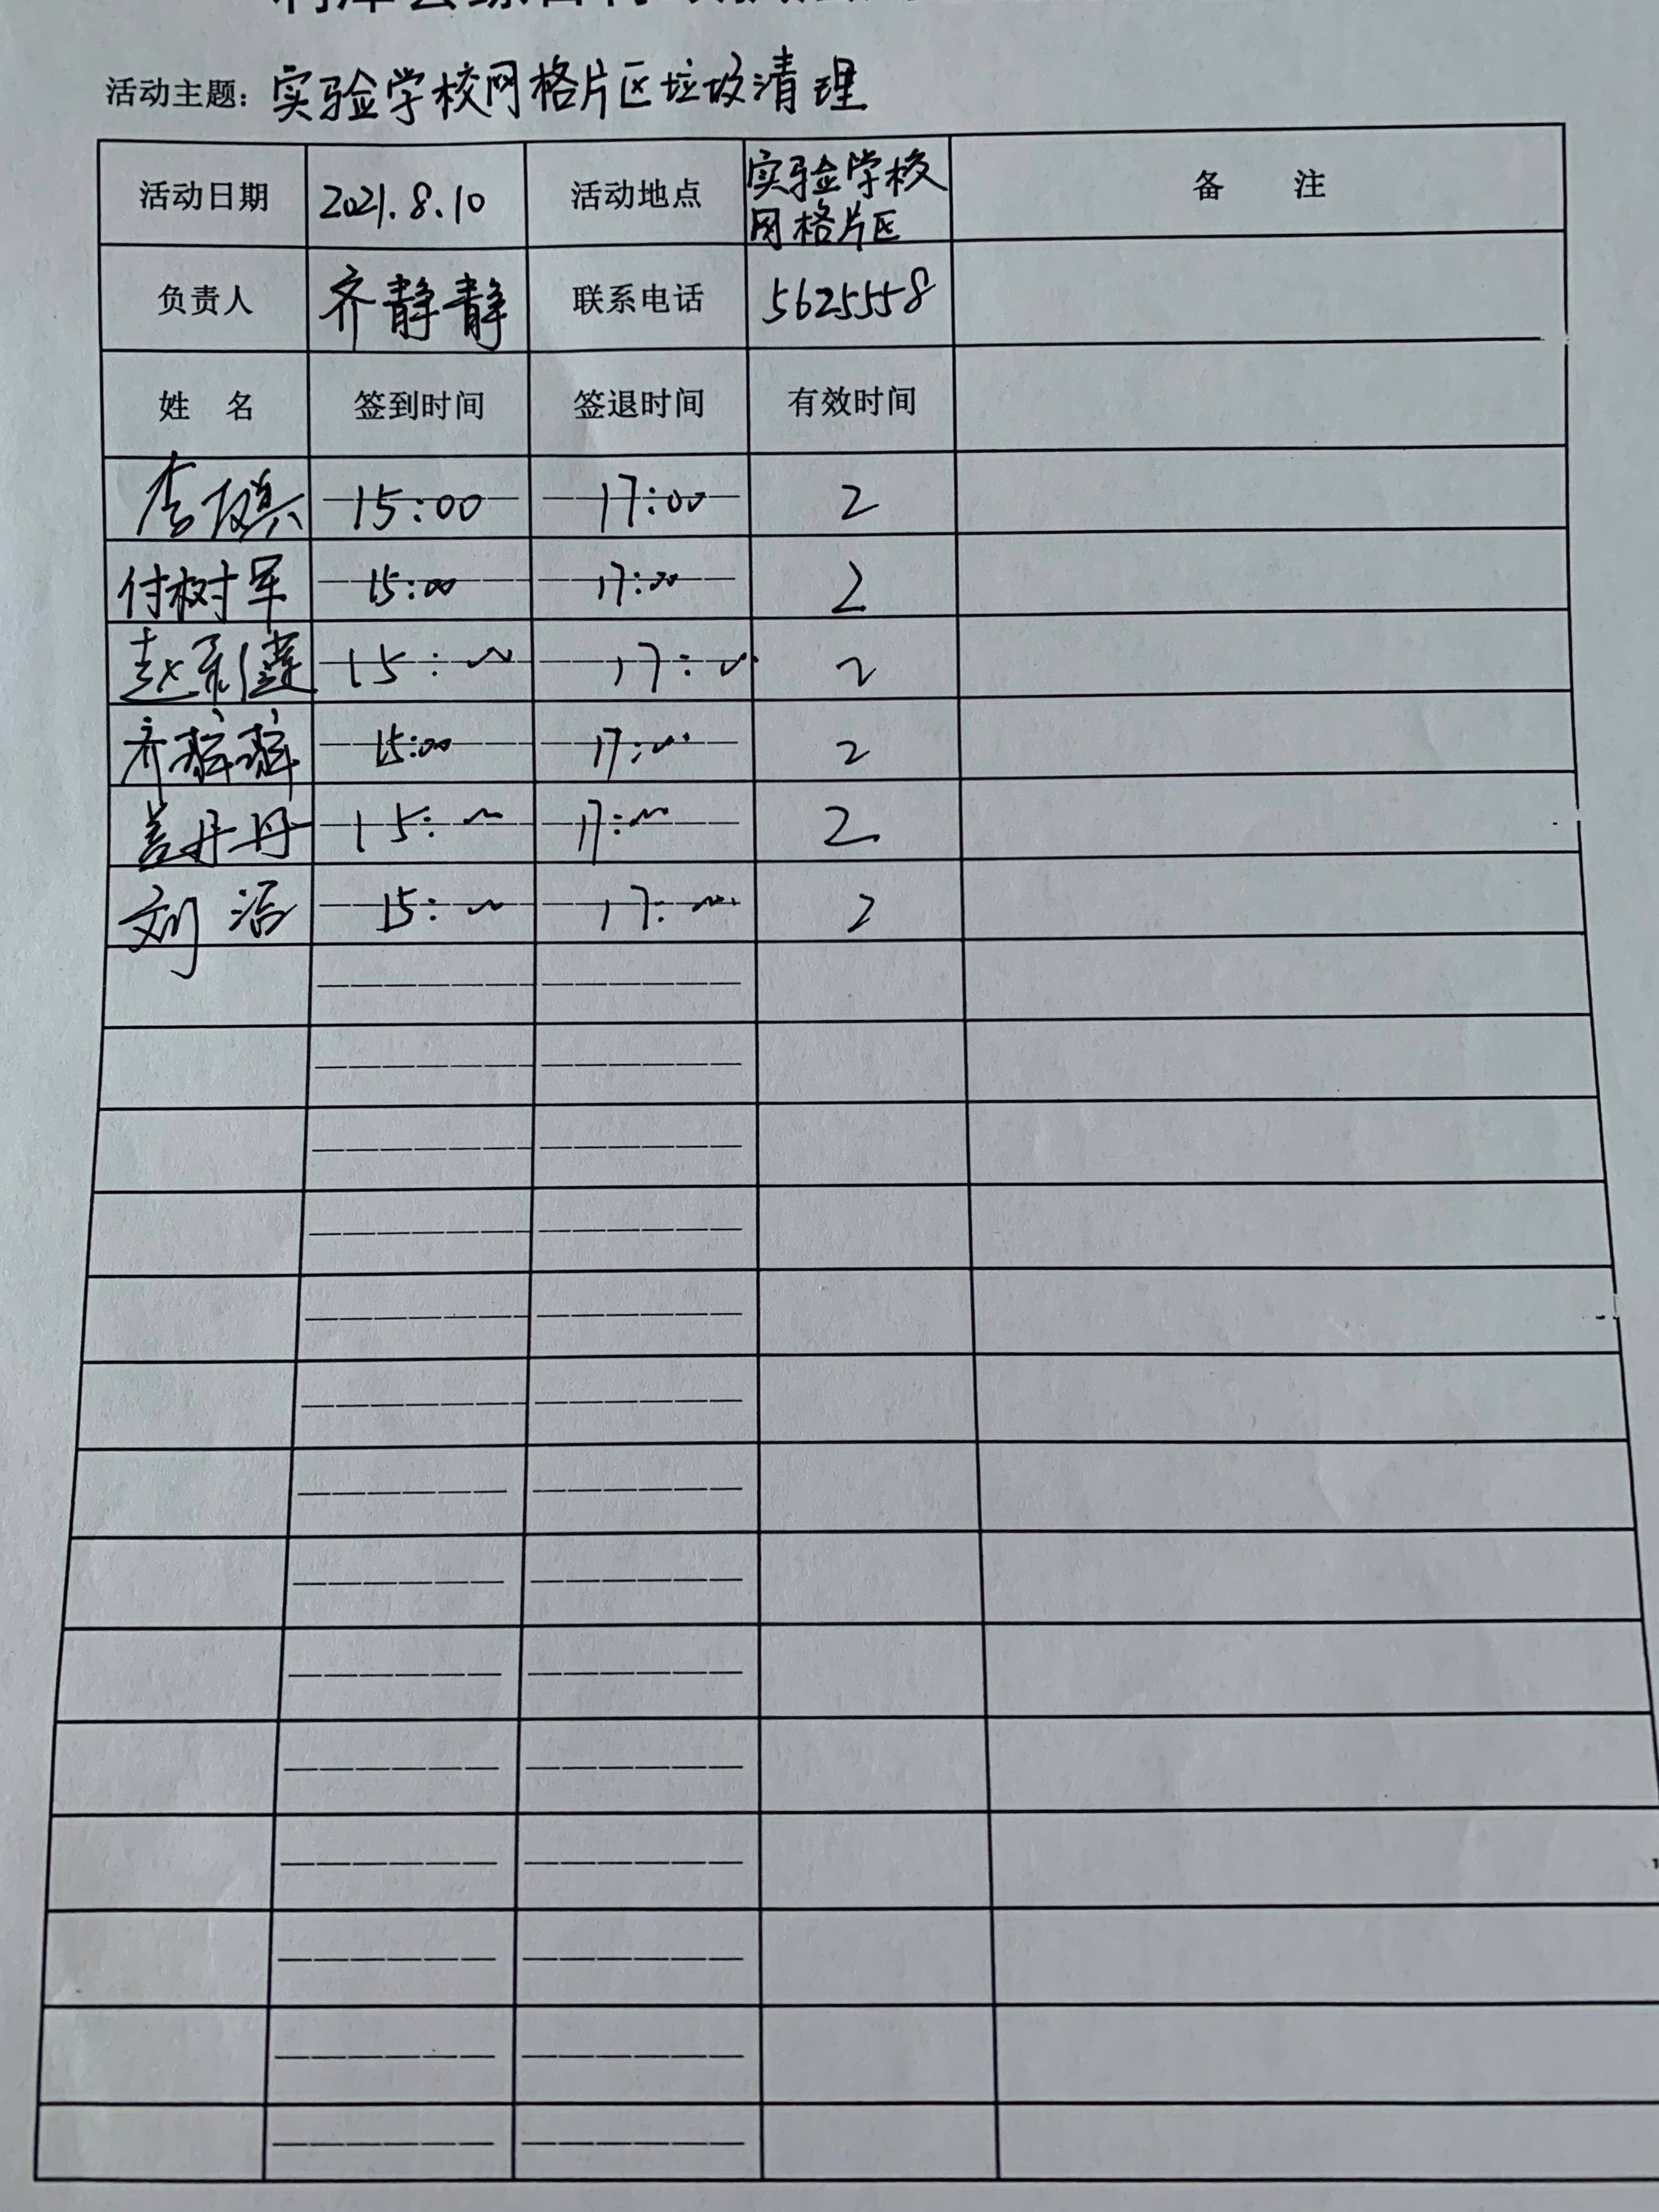 活动主题：实验学校网格片区垃圾清理
活动日期 2021.8.10 活动地点 实验学校网格片区 备 注
负责人 齐静静 联系电话 5625558
姓 名 签到时间 签退时间 有效时间
15:00 17:00 2
付树军 15:00 17:00 2
赵 15:00 17:00 2
齐静静 15:00 17:00 2
盖丹丹 15:00 17:00 2
刘洁 15:00 17:00 2